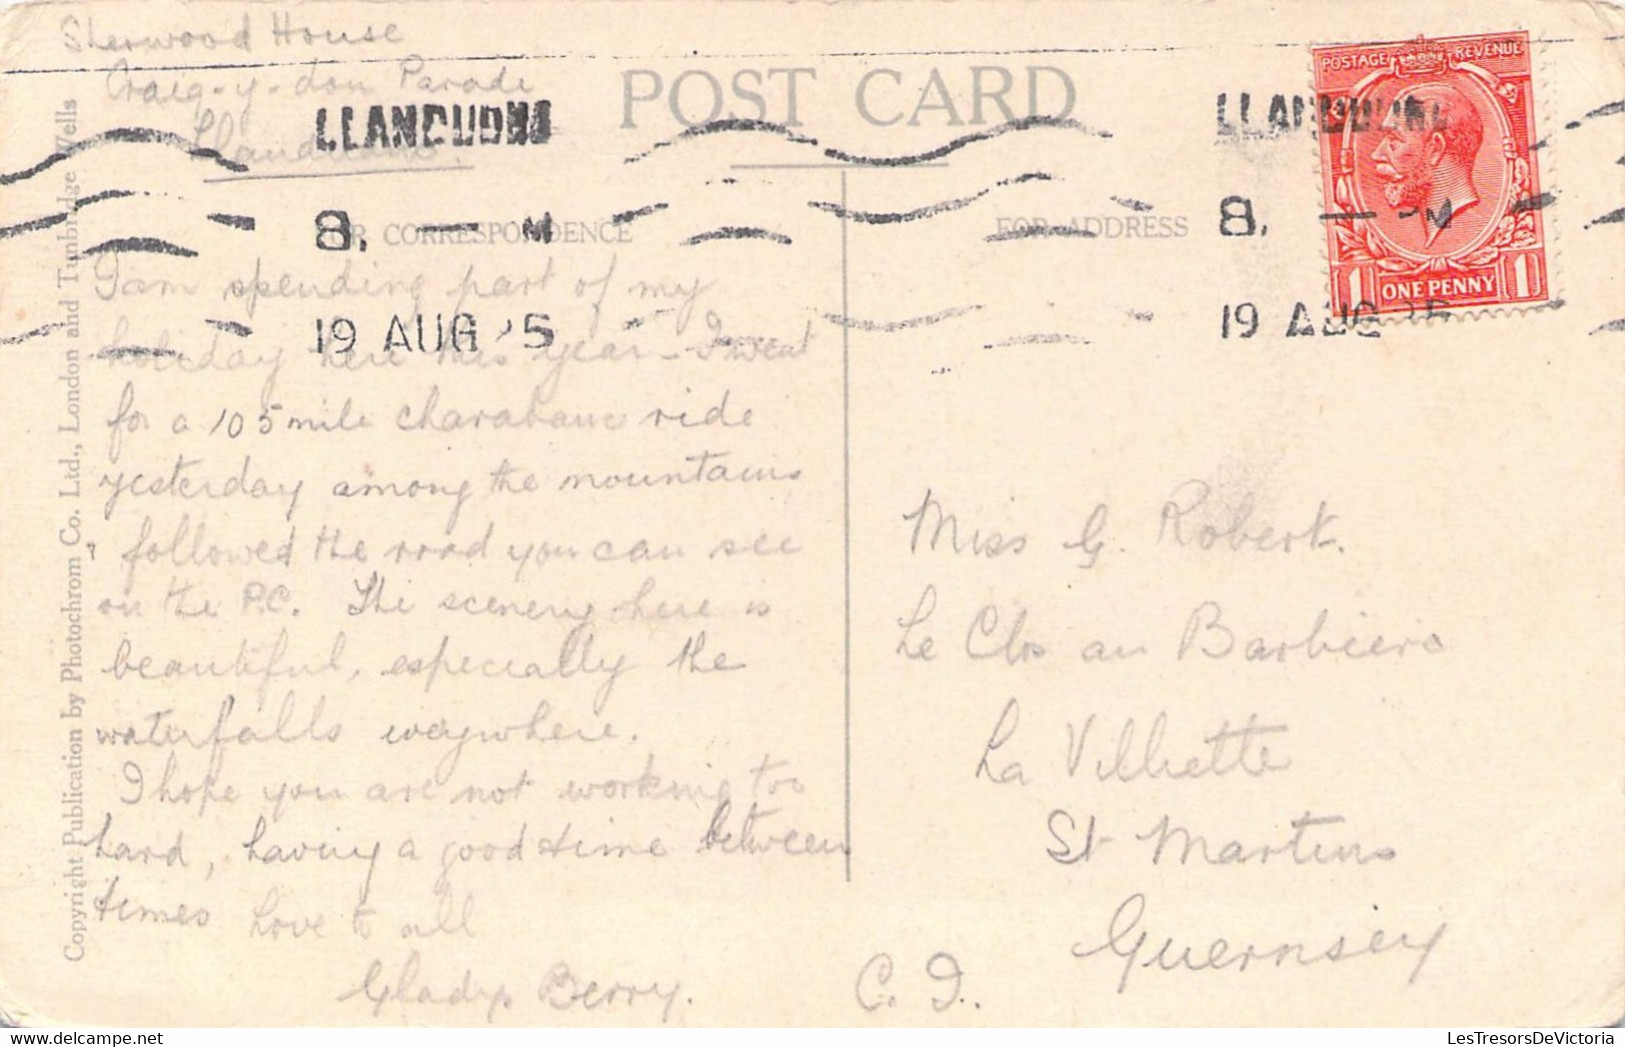 Sherwood House
Craig-y-don Parade
Llandudno.
POST CARD
LLANDUDNO
8. — M
19 AUG 25
LLANDUDNO
8. — PM
19 AUG 25
POSTAGE REVENUE
1 ONE PENNY 1
FOR CORRESPONDENCE
FOR ADDRESS
Copyright Publication by Photochrom Co. Ltd., London and Tunbridge Wells
I am spending part of my
holiday here this year - I went
for a 105 mile charabanc ride
yesterday among the mountains
& followed the road you can see
on the P.C. The scenery here is
beautiful, especially the
waterfalls everywhere.
I hope you are not working too
hard, having a good time between
times Love to all
Gladys Berry.
Miss G. Robert.
Le Clos au Barbiers
La Villiette
St Martins
Guernsey
C. I.
LesTresorsDeVictoria